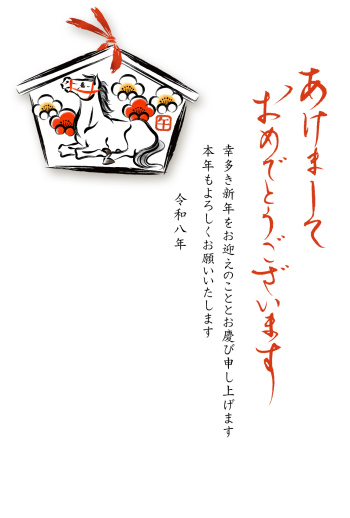 あけまして
おめでとうございます
幸多き新年をお迎えのこととお慶び申し上げます
本年もよろしくお願いいたします
令和八年
午